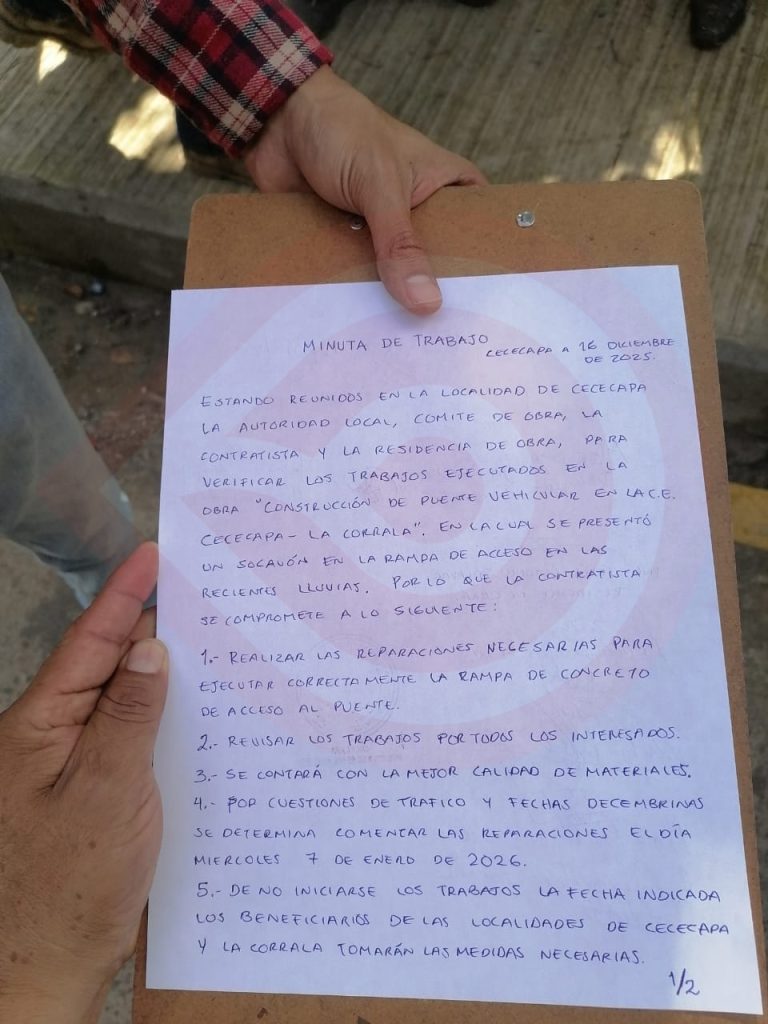 MINUTA DE TRABAJO
CECECAPA A 16 DICIEMBRE
DE 2025.
ESTANDO REUNIDOS EN LA LOCALIDAD DE CECECAPA
LA AUTORIDAD LOCAL, COMITE DE OBRA, LA
CONTRATISTA Y LA RESIDENCIA DE OBRA, PARA
VERIFICAR LOS TRABAJOS EJECUTADOS EN LA
OBRA "CONSTRUCCIÓN DE PUENTE VEHICULAR EN LA C.E.
CECECAPA - LA CORRALA". EN LA CUAL SE PRESENTÓ
UN SOCAVÓN EN LA RAMPA DE ACCESO EN LAS
RECIENTES LLUVIAS. POR LO QUE LA CONTRATISTA
SE COMPROMETE A LO SIGUIENTE:
1.- REALIZAR LAS REPARACIONES NECESARIAS PARA
EJECUTAR CORRECTAMENTE LA RAMPA DE CONCRETO
DE ACCESO AL PUENTE.
2.- REVISAR LOS TRABAJOS POR TODOS LOS INTERESADOS.
3.- SE CONTARÁ CON LA MEJOR CALIDAD DE MATERIALES.
4.- POR CUESTIONES DE TRAFICO Y FECHAS DECEMBRINAS
SE DETERMINA COMENZAR LAS REPARACIONES EL DÍA
MIERCOLES 7 DE ENERO DE 2026.
5.- DE NO INICIARSE LOS TRABAJOS LA FECHA INDICADA
LOS BENEFICIARIOS DE LAS LOCALIDADES DE CECECAPA
Y LA CORRALA TOMARÁN LAS MEDIDAS NECESARIAS.
1/2